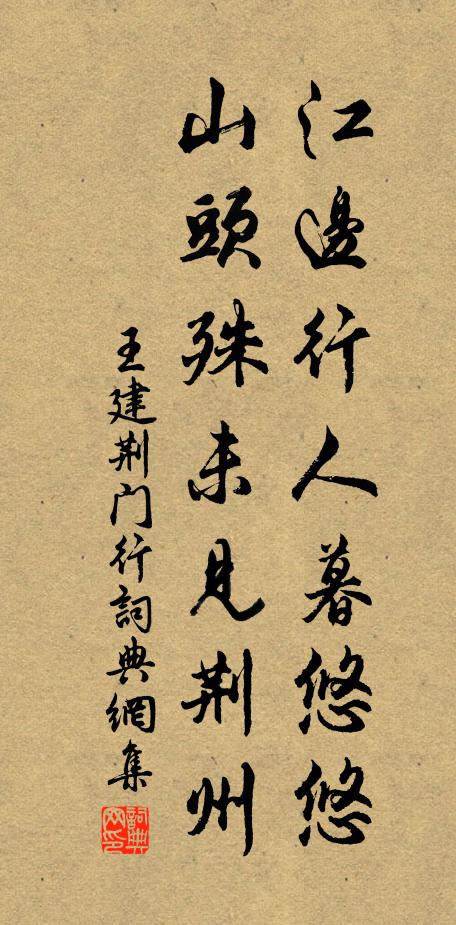 江邊行人暮悠悠
山頭殊未見荆州
王建荆门行詞典網集
詞典网印